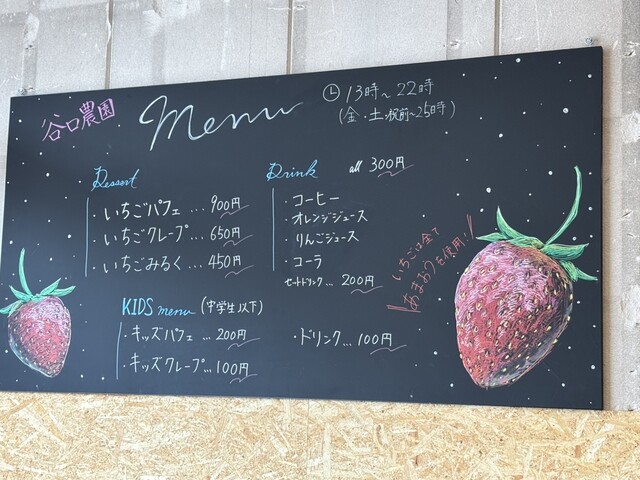 谷口農園
Menu
13時〜22時
(金・土・祝前〜25時)
Dessert
・いちごパフェ…900円
・いちごクレープ…650円
・いちごみるく…450円
Drink all 300円
・コーヒー
・オレンジジュース
りんごジュース
・コーラ
セートドリンク…200円
いちごは全て
あまおうを使用!
KIDS menu (中学生以下)
・キッズパフェ…200円
・キッズクレープ…100円
・ドリンク…100円